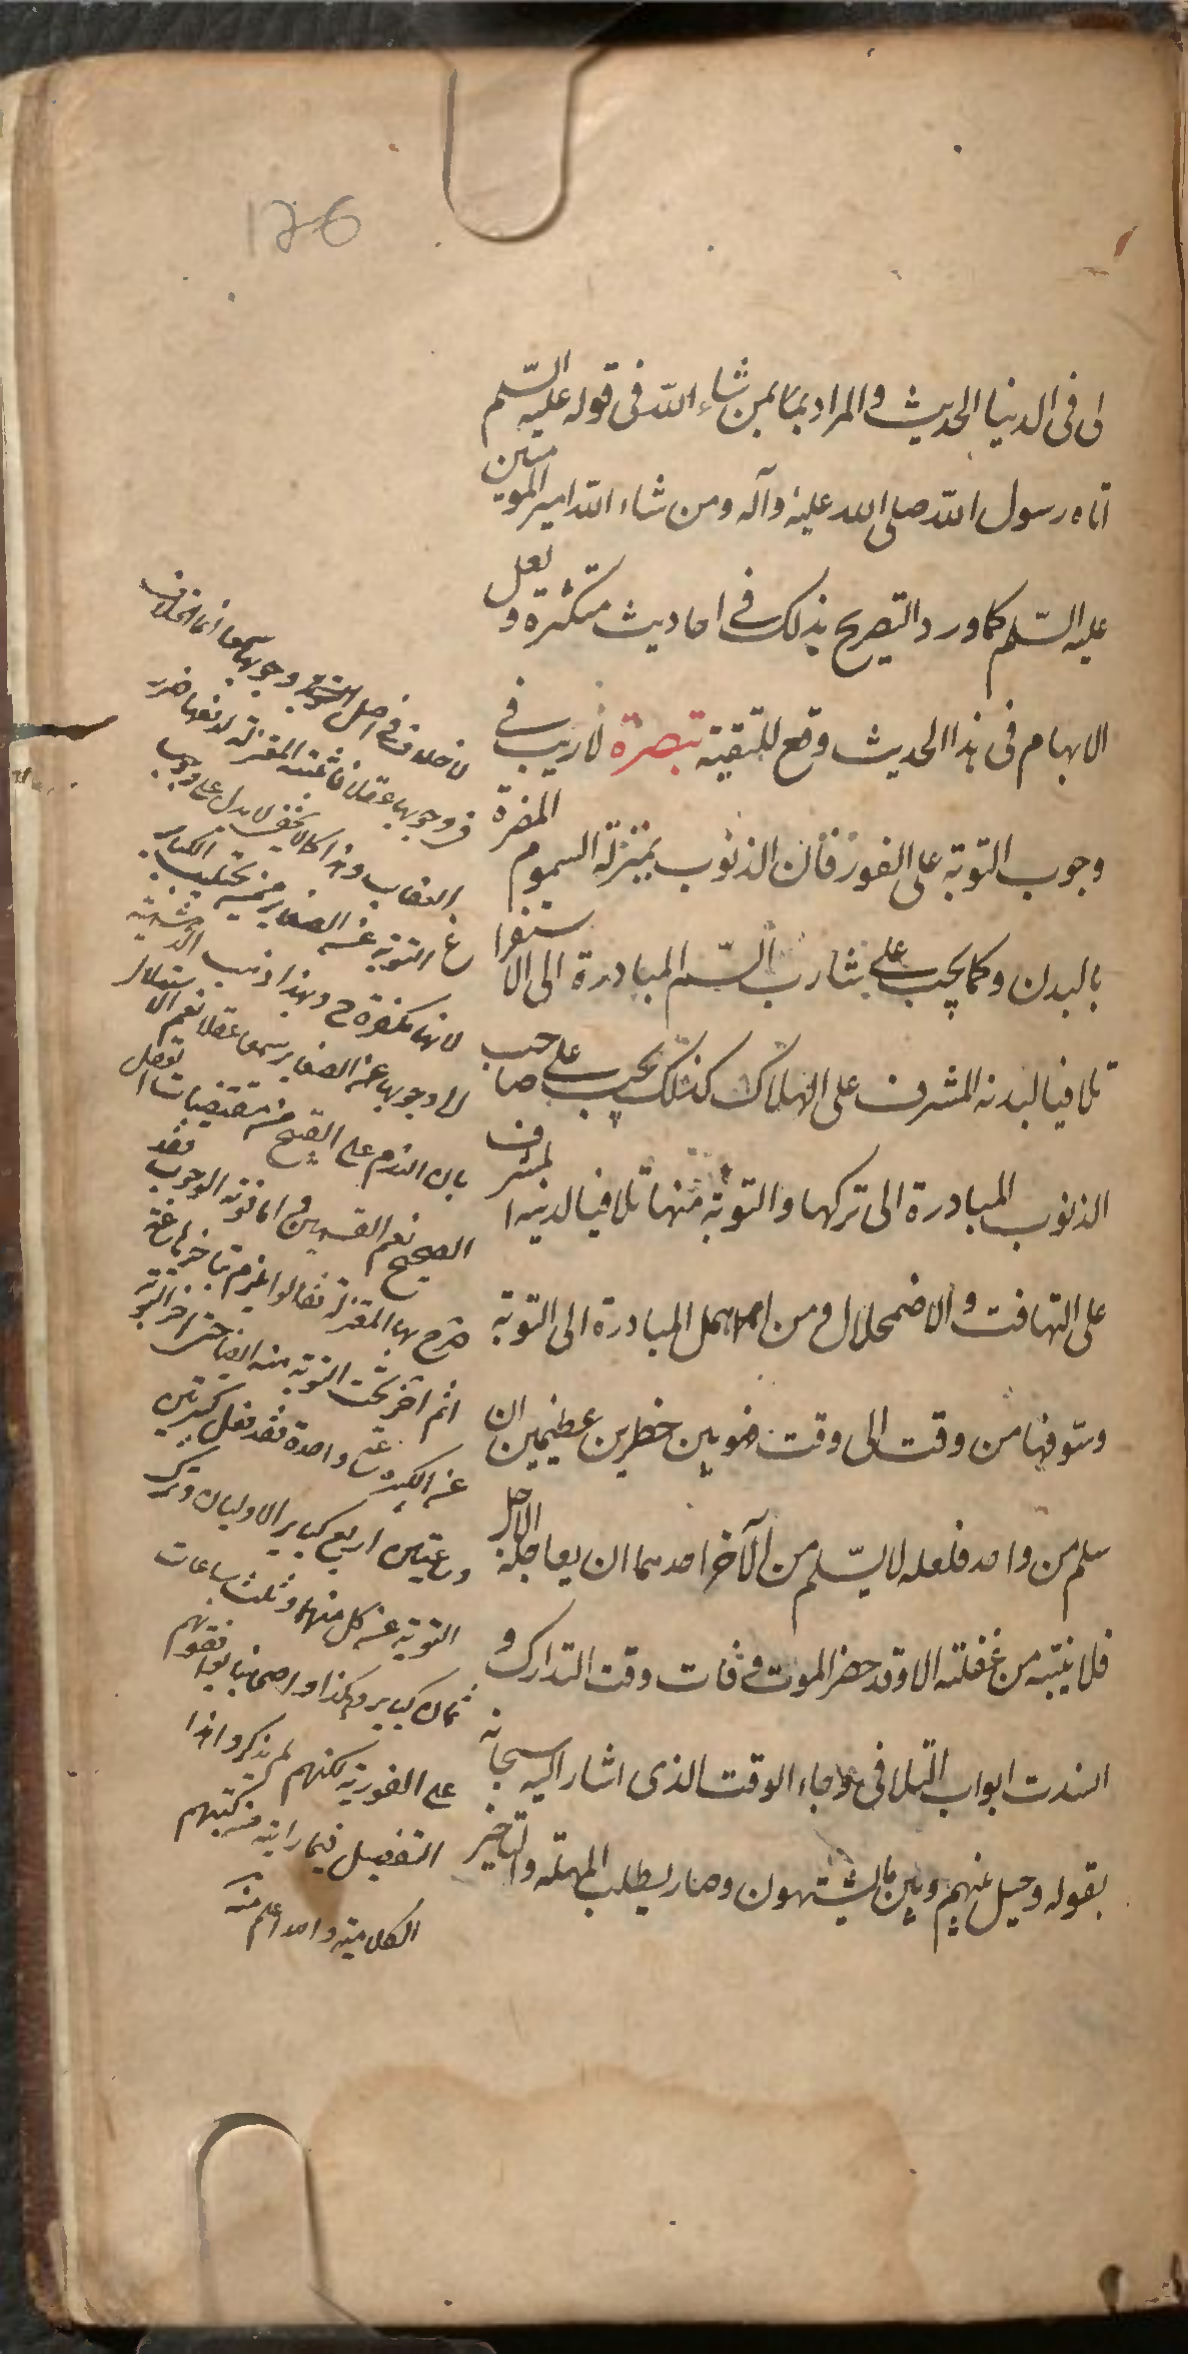 126
لى فى الدنيا الحديث والمراد بمن شاء الله فى قوله عليه السّلم
اتاه رسول الله صلى الله عليه وآله ومن شاء الله امير المومنين
عليه السّلم كما ورد التصريح بذلك فى احاديث متكثرة ولعل
الابهام فى هذا الحديث وقع للتقيّة تبصرة لا ريب فى
وجوب التوبة على الفور فان الذنوب بمنزلة السموم المضرة
بالبدن وكما يجب على شارب السّم المبادرة الى الاستفرا
تلافيا لبدنه المشرف على الهلاك كذلك يجب على صاحب
الذنوب المبادرة الى تركها والتوبة منها تلافيا لدينه المشرف
على التهافت والاضمحلال ومن اهمل المبادرة الى التوبة
وسوّفها من وقت الى وقت فهو بين خطرين عظيمين ان
سلم من واحد فلعله لا يسّلم من الآخر احدهما ان يعاجله الاجل
فلا ينتبه من غفلته الا وقد حضر الموت وفات وقت التدارك و
انسدت ابواب التلافى وجاء الوقت الذى اشار اليه سبحانه
بقوله وحيل بينهم وبين ما يشتهون وصار يطلب المهلة والتاخير
لا خلاف فى اصل وجوبها سمعا انما الخلاف
فى وجوبها عقلا فاثبته المعتزلة لدفعها ضرر
العقاب وهذا كما لا يخفى لا يدل على وجوب
التوبة عن الصغاير ممن يجتنب الكباير
لانها مكفرة ح ولهذا ذهب البهشمية
الى وجوبها عن الصغاير سمعا لا عقلا نعم الاستدلال
بان الندم على القبيح من مقتضيات العقل
الصحيح نعم القسمين واما فورية الوجوب فقد
صرح بها المعتزلة فقالوا يلزم بتاخيرها ساعة
اثم آخر تجب التوبة منه ايضا حتى ان من اخر التوبة
عن الكبيرة ساعة واحدة فقد فعل كبيرتين
وساعتين اربع كباير الاوليان وترك
التوبة عن كل منهما وثلث ساعات
ثمان كباير وهكذا واصحابنا يوافقونهم
على الفورية لكنهم لم يذكروا هذا
التفصيل فيما رايته من كتبهم
الكلامية والله اعلم منه